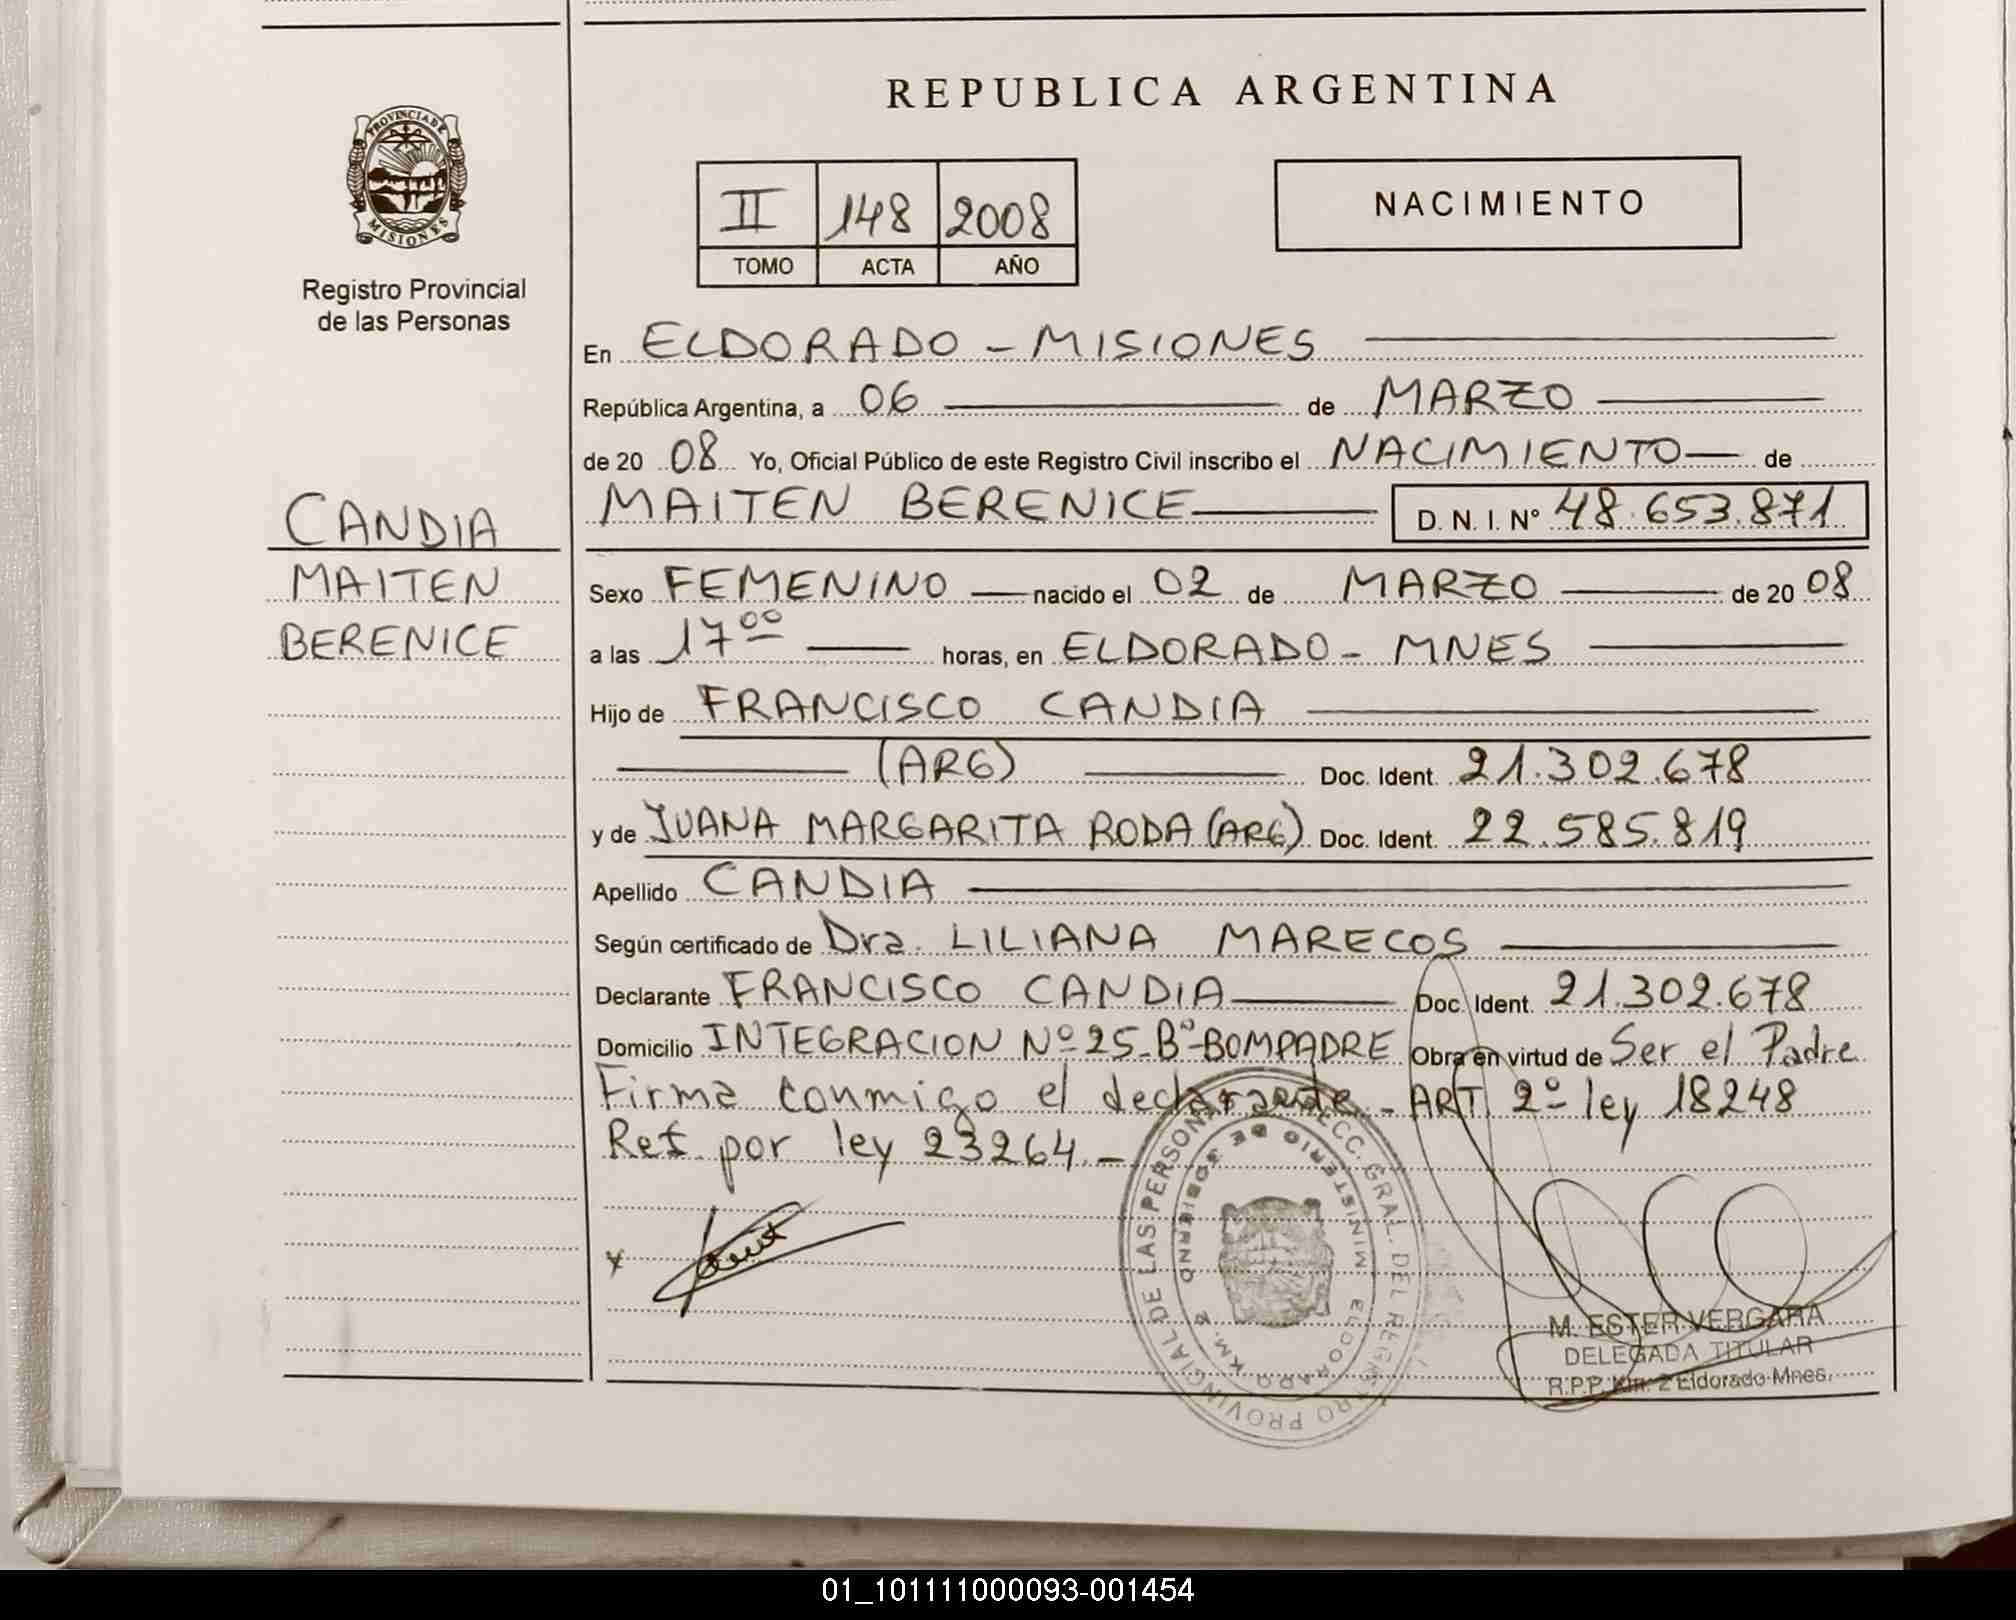 REPUBLICA ARGENTINA
PROVINCIA DE MISIONES
Registro Provincial
de las Personas
II 148 2008
TOMO ACTA AÑO
NACIMIENTO
En ELDORADO - MISIONES
República Argentina, a 06 de MARZO
de 20 08 Yo, Oficial Público de este Registro Civil inscribo el NACIMIENTO de
MAITEN BERENICE D. N. I. Nº 48.653.871
CANDIA
MAITEN
BERENICE
Sexo FEMENINO nacido el 02 de MARZO de 20 08
a las 17 00 horas, en ELDORADO - MNES
Hijo de FRANCISCO CANDIA
(ARG) Doc. Ident. 21.302.678
y de JUANA MARGARITA RODA (ARG) Doc. Ident. 22.585.819
Apellido CANDIA
Según certificado de Dra. LILIANA MARECOS
Declarante FRANCISCO CANDIA Doc. Ident. 21.302.678
Domicilio INTEGRACION Nº 25 - Bº BOMPADRE Obra en virtud de Ser el Padre
Firma conmigo el declarante - ART 2º ley 18248
Ref por ley 23264. -
x
DIRECC. GRAL. DEL REGISTRO PROVINCIAL DE LAS PERSONAS
MINISTERIO DE GOBIERNO
ELDORADO KM. 2
M. ESTER VERGARA
DELEGADA TITULAR
R.P.P. Km. 2 Eldorado Mnes.
01_101111000093-001454